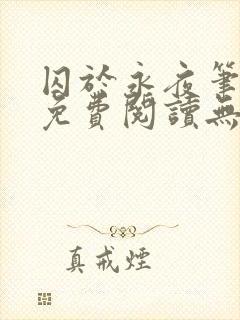 囚於永夜筆
免費閱讀無
真戒煙